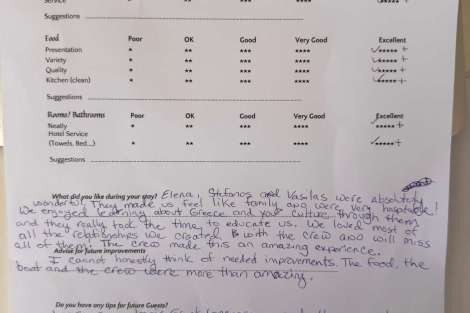 Service * ** *** **** *****
Suggestions
Food Poor OK Good Very Good Excellent
Presentation * ** *** **** ***** +
Variety * ** *** **** ***** +
Quality * ** *** **** ***** +
Kitchen (clean) * ** *** **** ***** +
Suggestions
Rooms/ Bathrooms Poor OK Good Very Good Excellent
Neatly * ** *** **** ***** +
Hotel Service
(Towels, Bed...) * ** *** **** ***** +
Suggestions
What did you like during your stay? Elena, Stefanos and Vasilas were absolutely
wonderful! They made us feel like family and were very hospitable!
We enjoyed learning about Greece and your culture through them
and they really took the time to educate us. We loved most of
all the relationships we created with the crew and will miss
all of them! The crew made this an amazing experience.
Advise for future improvements
I cannot honestly think of needed improvements. The food, the
boat and the crew were more than amazing.
Do you have any tips for future Guests?